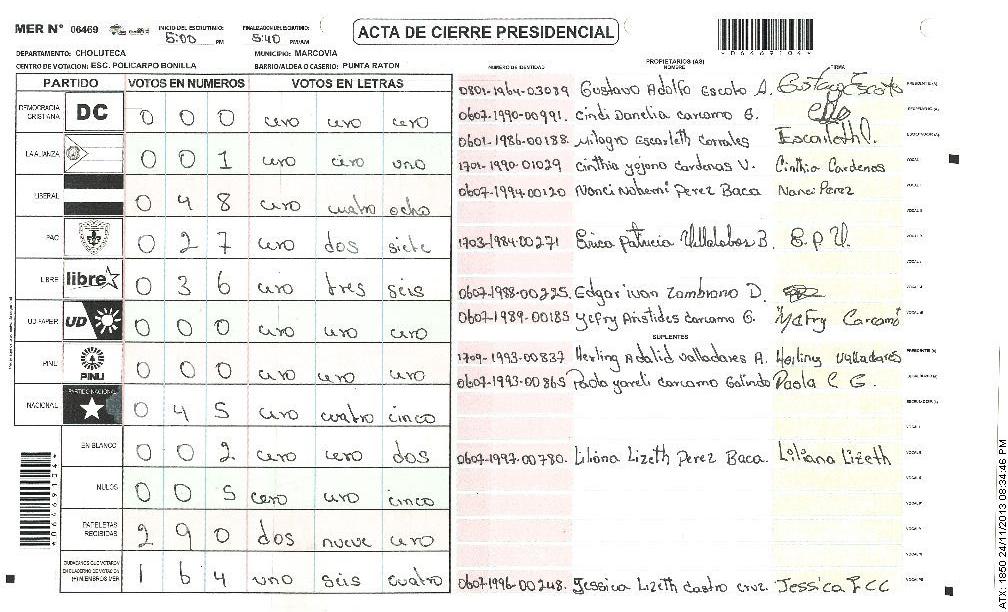 MER Nº 06469
INICIO DEL ESCRUTINIO: 5:00 PM
FINALIZACION ESCRUTINIO: 5:40 PM/AM
ACTA DE CIERRE PRESIDENCIAL
DEPARTAMENTO: CHOLUTECA MUNICIPIO: MARCOVIA
CENTRO DE VOTACION: ESC. POLICARPO BONILLA BARRIO/ALDEA O CASERIO: PUNTA RATON
PARTIDO VOTOS EN NUMEROS VOTOS EN LETRAS
DEMOCRACIA CRISTIANA DC 0 0 0 cero cero cero
LA ALIANZA 0 0 1 cero cero uno
LIBERAL 0 4 8 cero cuatro ocho
PAC 0 2 7 cero dos siete
LIBRE libre 0 3 6 cero tres seis
UD FAPER UD 0 0 0 cero cero cero
PINU PINU 0 0 0 cero cero cero
NACIONAL PARTIDO NACIONAL 0 4 5 cero cuatro cinco
EN BLANCO 0 0 2 cero cero dos
NULOS 0 0 5 cero cero cinco
PAPELETAS RECIBIDAS 2 9 0 dos nueve cero
CIUDADANOS QUE VOTARON EN CUADERNO DE VOTACION (+) MIEMBROS MER 1 6 4 uno seis cuatro
PROPIETARIOS (AS)
NUMERO DE IDENTIDAD NOMBRE FIRMA
0801-1964-03089 Gustavo Adolfo Escoto A. Gustavo Escoto
0607-1990-00991. Cindi Danelia carcamo G.
0601-1986-00188. Milagro Escarleth Corrales Escarleth C.
1701-1990-01029 Cinthia yojana Cardenas V. Cinthia Cardenas
0607-1994-00120 Nanci Nohemi Perez Baca Nanci Perez
1703-1984-00271 Erica Patricia Villalobos B. E.P.V.
0607-1988-00225. Edgar ivan Zambrano D.
0607-1989-00185 Yefry Aristides carcamo G. Yefry Carcamo
SUPLENTES
1709-1993-00837 Herling Adalid Valladares A. Herling Valladares
0607-1993-00865 Paola yareli carcamo Galindo Paola C G.
0607-1997-00780. Liliana Lizeth Perez Baca. Liliana Lizeth
0607-1996-00248. Jessica Lizeth Castro cruz. Jessica L C C
*06469134*
ATX 1850 24/11/2013 08:34:46 PM